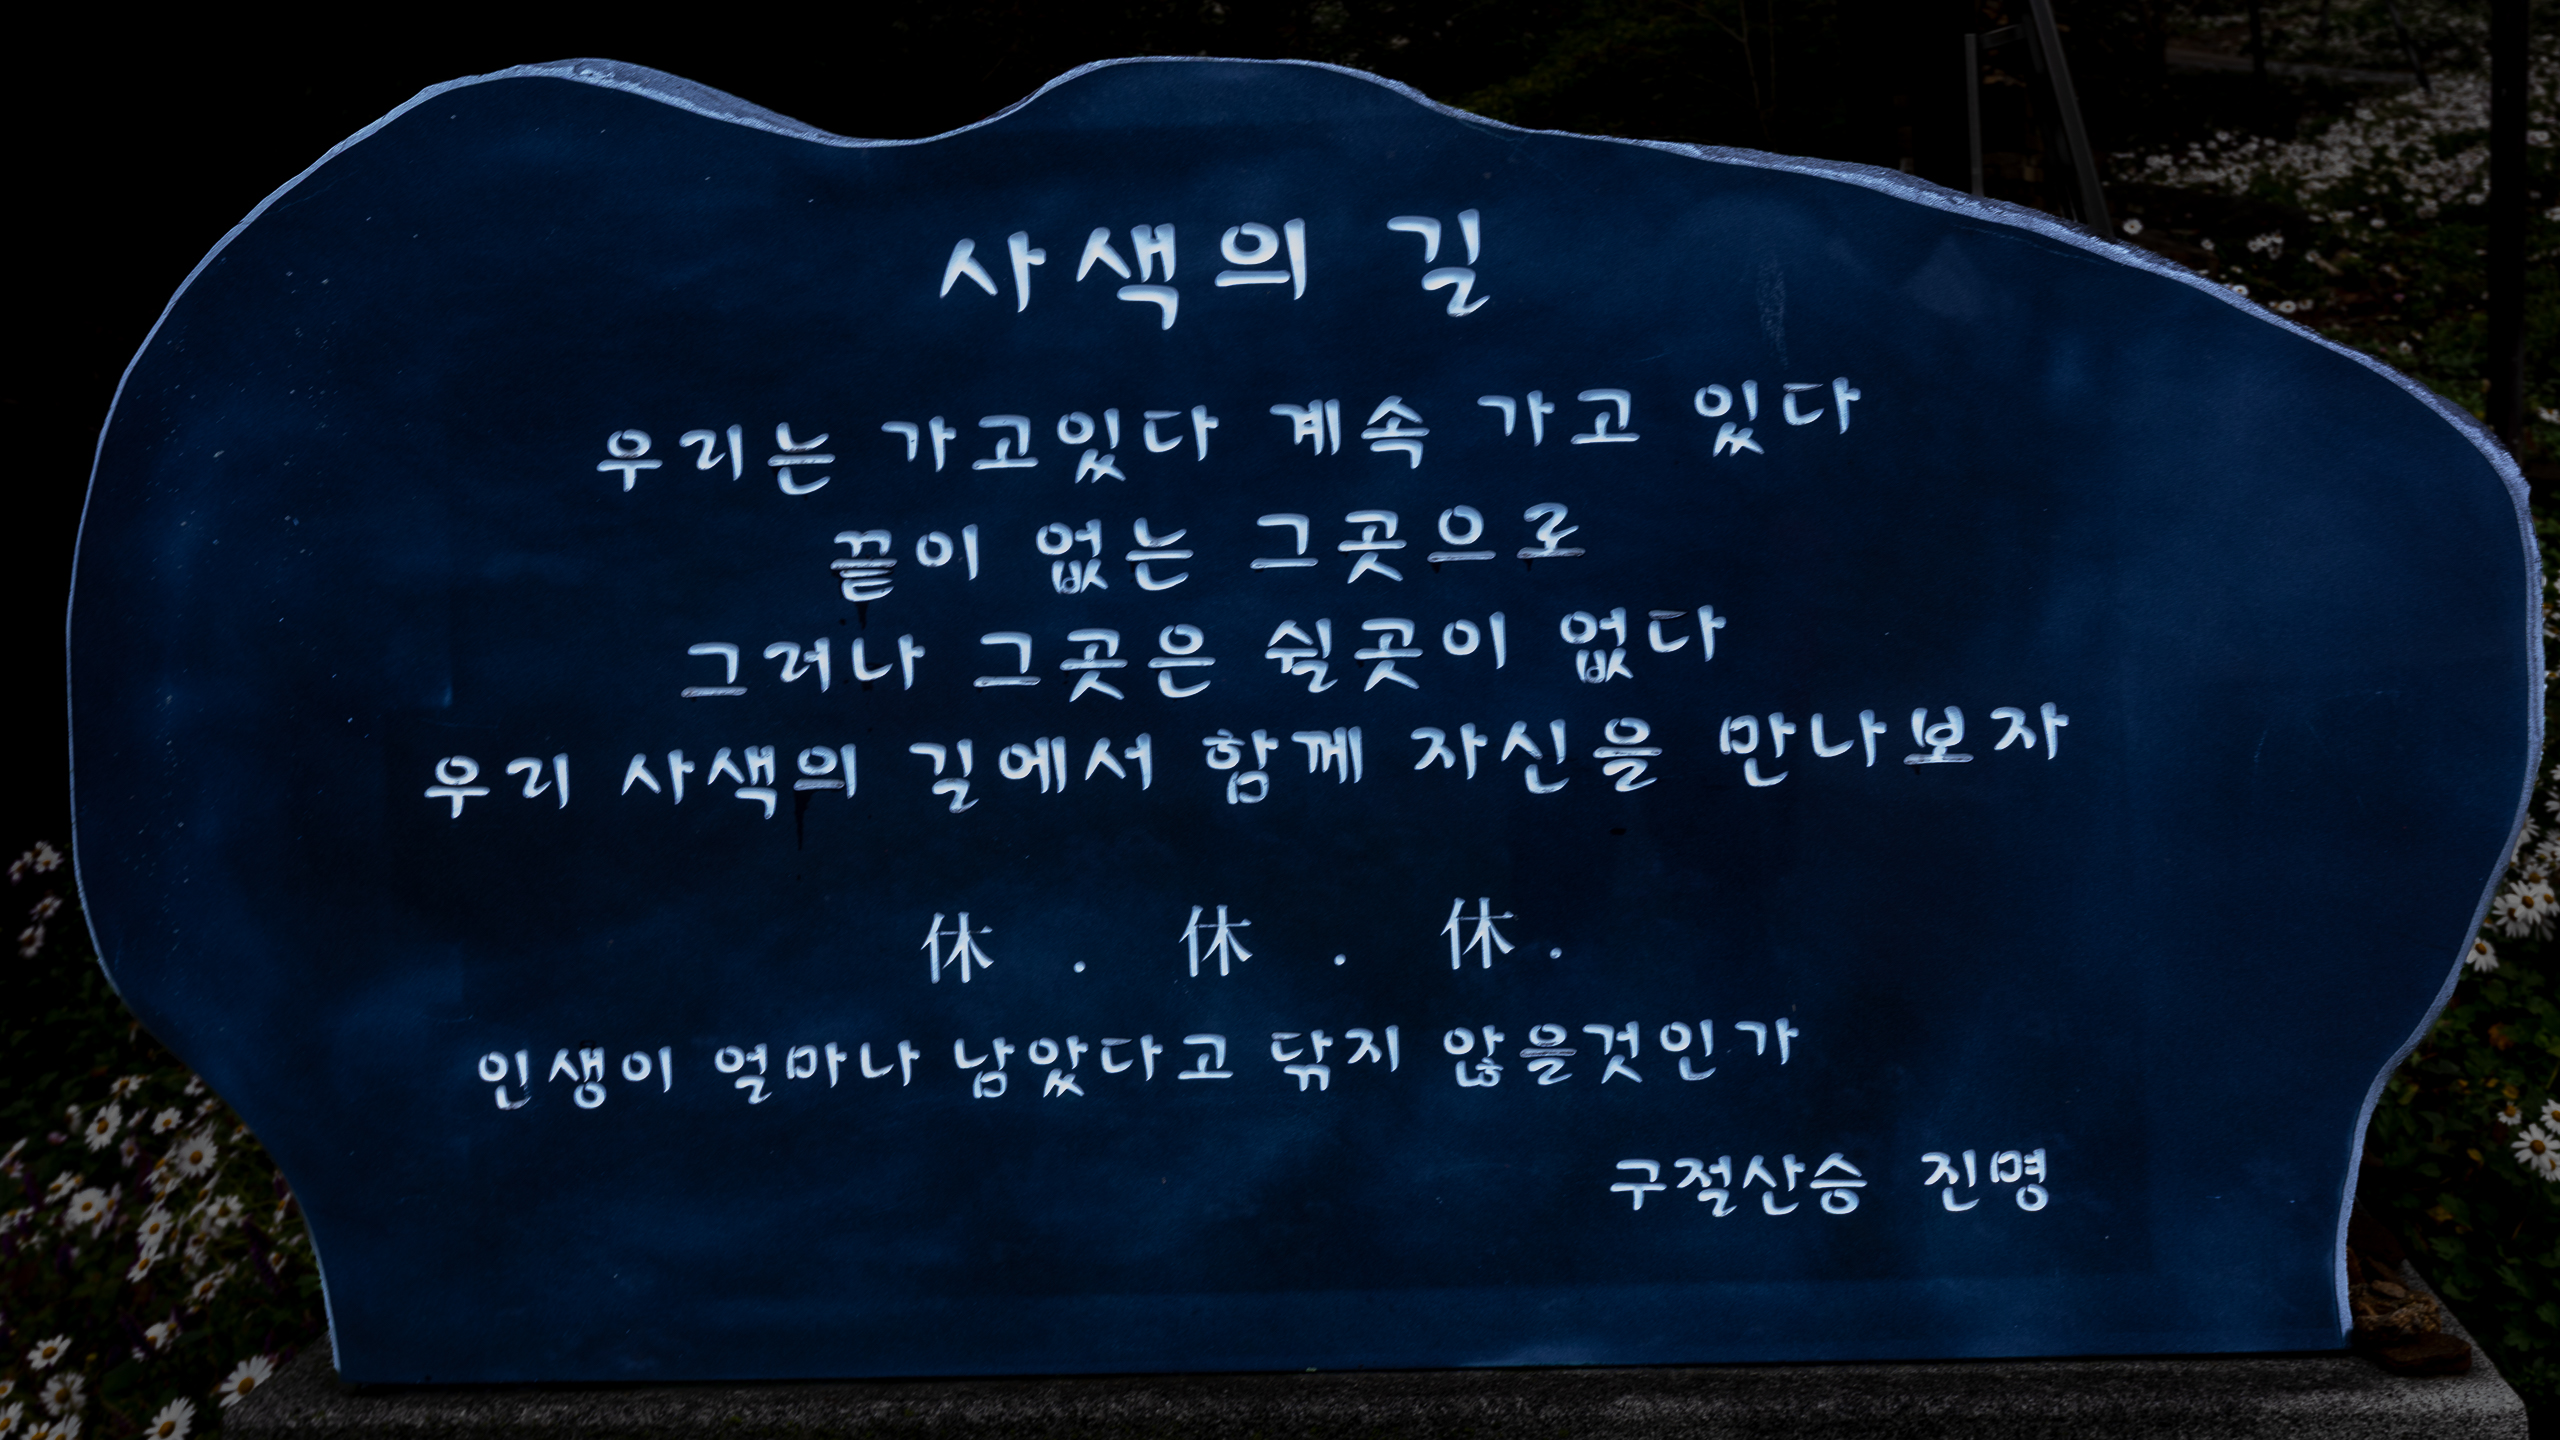 사색의 길
우리는 가고있다 계속 가고 있다
끝이 없는 그곳으로
그러나 그곳은 쉴곳이 없다
우리 사색의 길에서 함께 자신을 만나보자
休 . 休 . 休 .
인생이 얼마나 남았다고 닦지 않을것인가
구절산승 진명